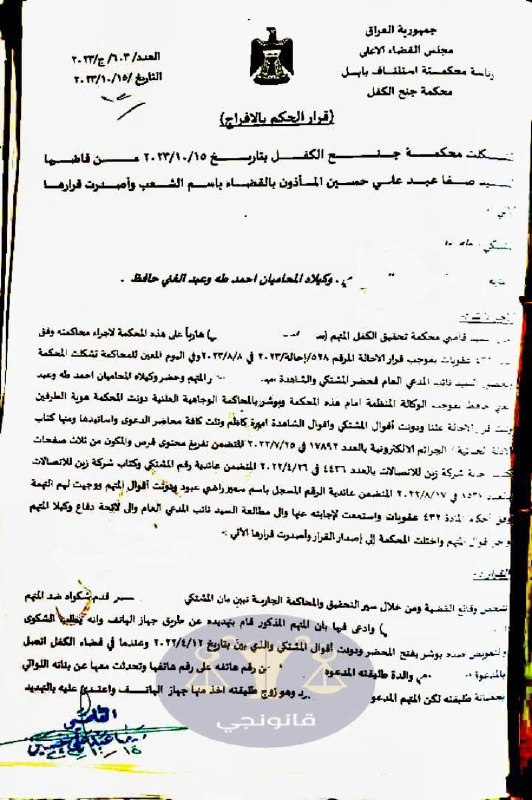 جمهورية العراق
مجلس القضاء الاعلى
رئاسة محكمة استئناف بابل
محكمة جنح الكفل
العدد/ ٦٠٣/ ج/ ٢٠٢٣
التاريخ/ ٢٠٢٣/١٠/١٥
(قرار الحكم بالافراج)
محكمة جنح الكفل بتاريخ ٢٠٢٣/١٠/١٥ من قاضيها
صفا عبد علي حسين المأذون بالقضاء باسم الشعب وأصدرت قرارها
وكيلاه المحاميان احمد طه وعبد الغني حافظ .
قاضي محكمة تحقيق الكفل المتهم هارباً على هذه المحكمة لاجراء محاكمته وفق
عقوبات بموجب قرار الاحالة المرقم ٥٢٨/إحالة/٢٠٢٣ في ٢٠٢٣/٨/٨ وفي اليوم المعين للمحاكمة تشكلت المحكمة
نائب المدعي العام فحضر المشتكي والشاهدة المتهم وحضر وكيلاه المحاميان احمد طه وعبد
حافظ بموجب الوكالة المنظمة امام هذه المحكمة وبوشر بالمحاكمة الوجاهية العلنية دونت المحكمة هوية الطرفين
قرار الاحالة علناً ودونت أقوال المشتكي واقوال الشاهدة اميرة كاظم وتلت كافة محاضر الدعوى واسانيدها ومنها كتاب
الجرائم الالكترونية بالعدد ١٧٨٩٢ في ٢٠٢٢/٧/٢٥ المتضمن تفريغ محتوى قرص والمكون من ثلاث صفحات
شركة زين للاتصالات بالعدد ٤٤٣٦ في ٢٠٢٢/٤/٢٦ المتضمن عائدية رقم المشتكي وكتاب شركة زين للاتصالات
في ٢٠٢٢/٨/١٧ المتضمن عائدية الرقم المسجل باسم سمير راضي عبود ودونت أقوال المتهم ووجهت لهم التهمة
وفق أحكام المادة ٤٣٢ عقوبات واستمعت لإجابته عنها والى مطالعة السيد نائب المدعي العام والى لائحة دفاع وكيلا المتهم
اقوال المتهم واختلت المحكمة إلى إصدار القرار وأصدرت قرارها الآتي :-
القرار :-
وقائع القضية ومن خلال سير التحقيق والمحاكمة الجارية تبين بان المشتكي قدم شكواه ضد المتهم
وادعى فيها بان المتهم المذكور قام بتهديده عن طريق جهاز الهاتف وانه يطلب الشكوى
والتعويض بوشر بفتح المحضر ودونت أقوال المشتكي والذي بين بتاريخ ٢٠٢٢/٤/١٢ وعندما في قضاء الكفل اتصل
والدة طليقته المدعوه رقم هاتفه على رقم هاتفها وتحدثت معها عن بناته اللواتي
بحضانة طليقته لكن المتهم المدعو وهو زوج طليقته اخذ منها جهاز الهاتف واعتدى عليه بالتهديد
القاضي
قانونجي